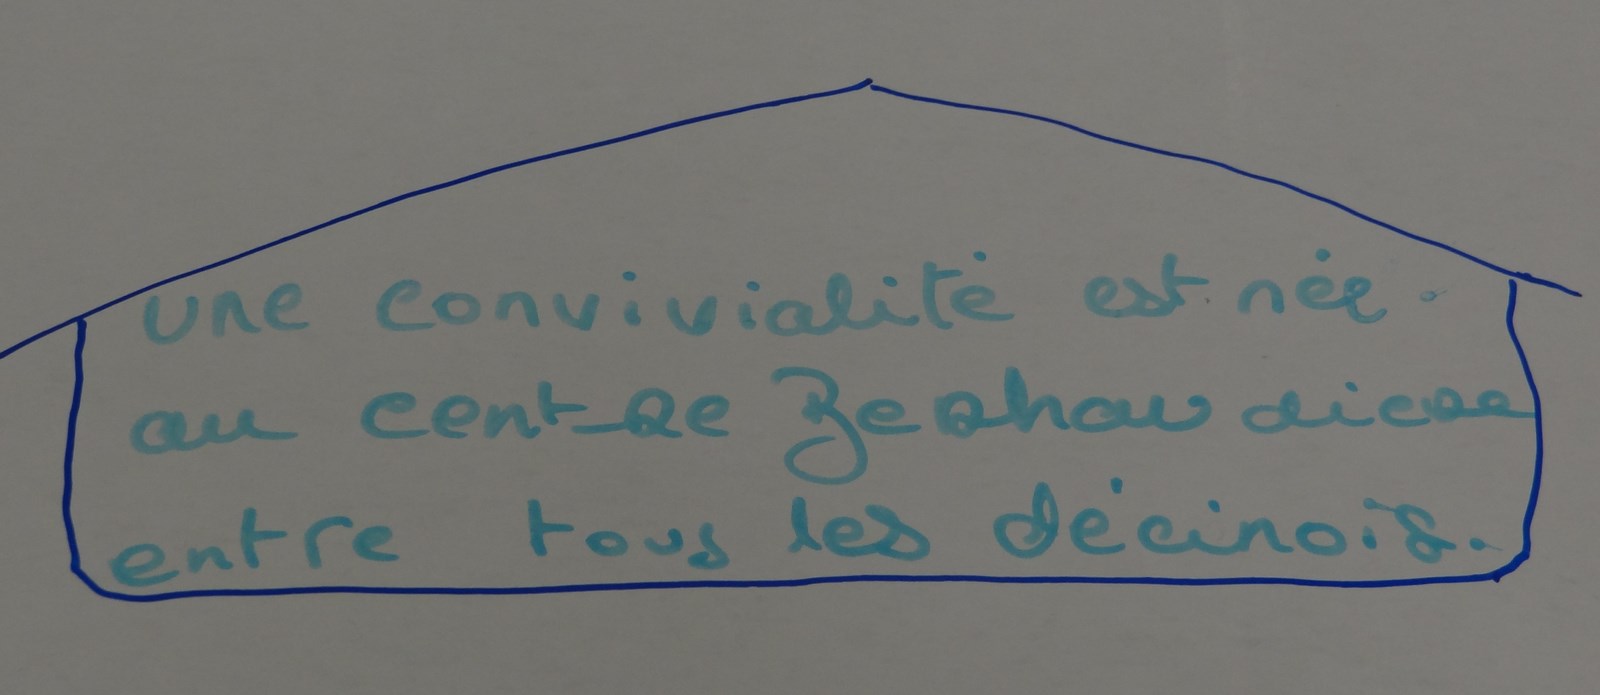 une convivialité est née.
au centre Berthaudière
entre tous les décinois.